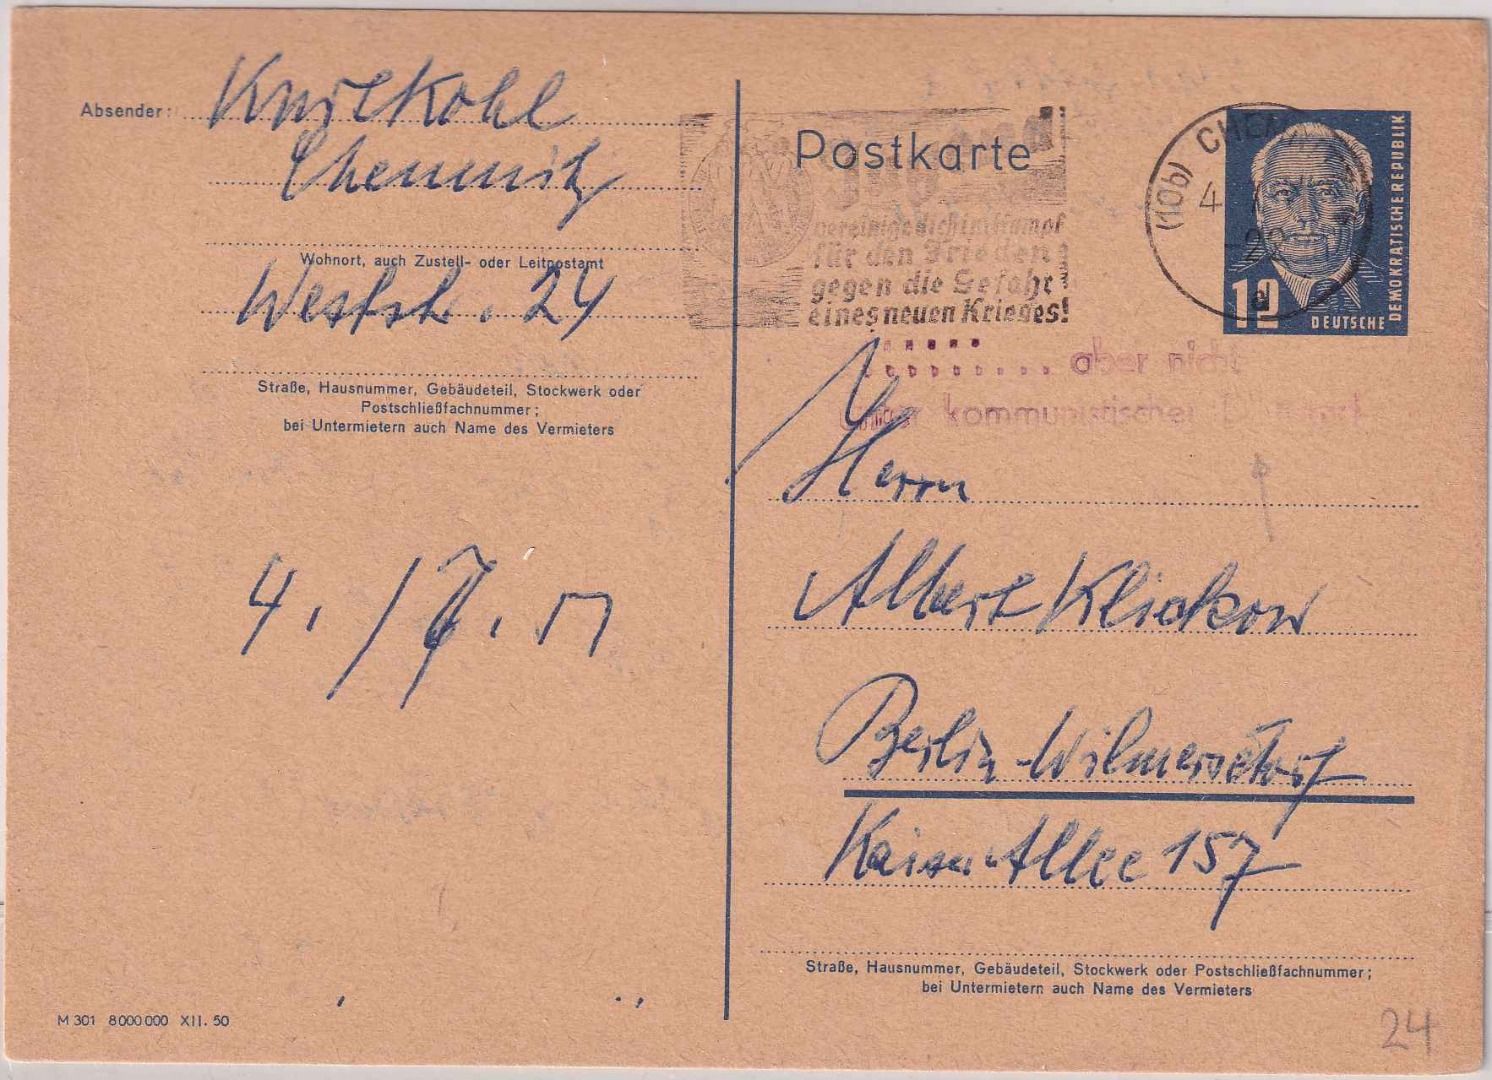 Absender: Knilkohl
Chemnitz
Wohnort, auch Zustell- oder Leitpostamt
Weststr. 24
Straße, Hausnummer, Gebäudeteil, Stockwerk oder
Postschließfachnummer;
bei Untermietern auch Name des Vermieters
4. / 7. 51
M 301 8000000 XII. 50
Postkarte
Jugend
vereinige dich im Kampf
für den Frieden
gegen die Gefahr
eines neuen Krieges!
(10b) CHEMNITZ
4
22
d
12
DEUTSCHE
DEMOKRATISCHE REPUBLIK
aber nicht
unter kommunistischer
Herrn
Albert Klickow
Berlin-Wilmersdorf
Kaiser Allee 157
Straße, Hausnummer, Gebäudeteil, Stockwerk oder Postschließfachnummer;
bei Untermietern auch Name des Vermieters
24